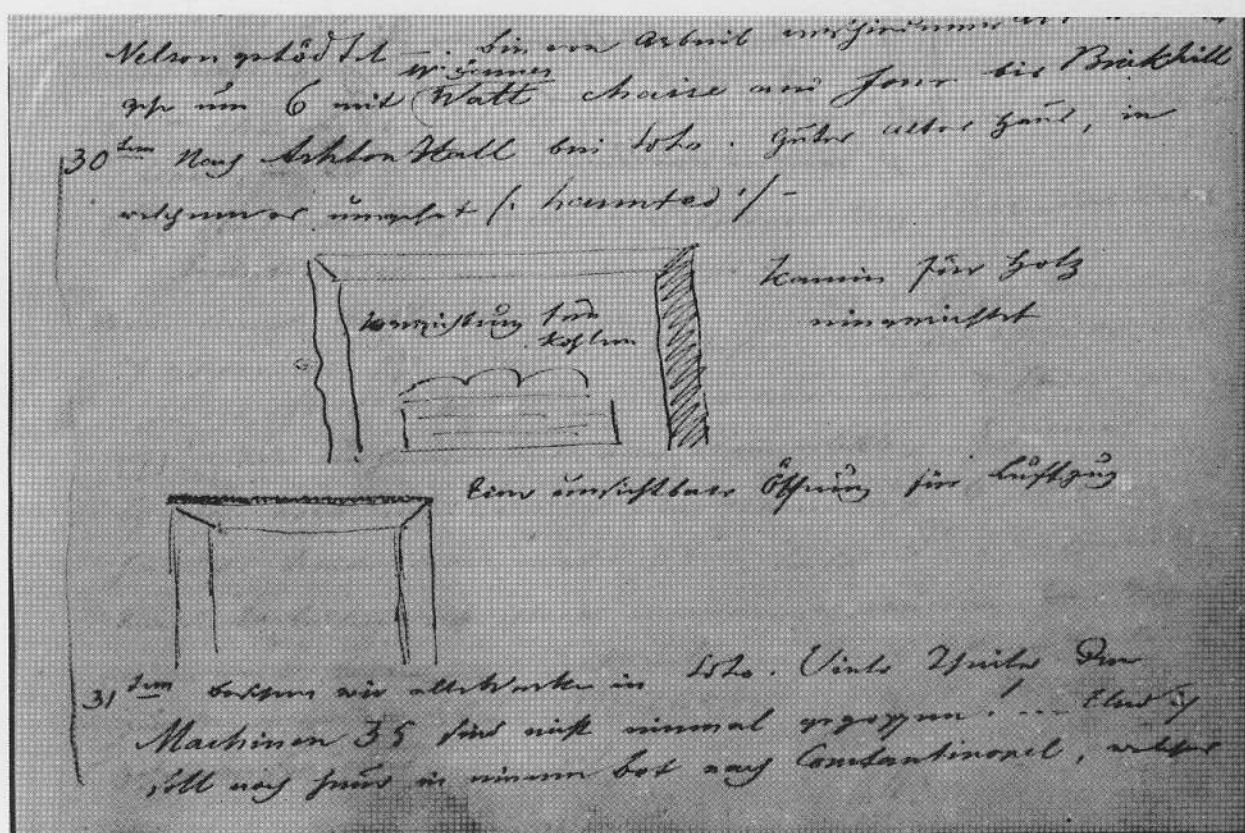 Nelson getödtet —. bin von Arbeit
gehe um 6 mit Watt chaise und four bis Brickhill
30ten Nach Ashton Hall bei Soho. Gutes altes Haus, in
welchem es umgehet (: haunted :) –
Kamin für Holz
eingerichtet
Vorrichtung für
Kohlen
Eine unsichtbare Öffnung für Luftzug
31ten besehen wir alle Werke in Soho. Viele Theile der
Machinen 35 sind nicht einmal gegossen! ... Und ich
soll noch heute in einem Bot nach Constantinopel, welches